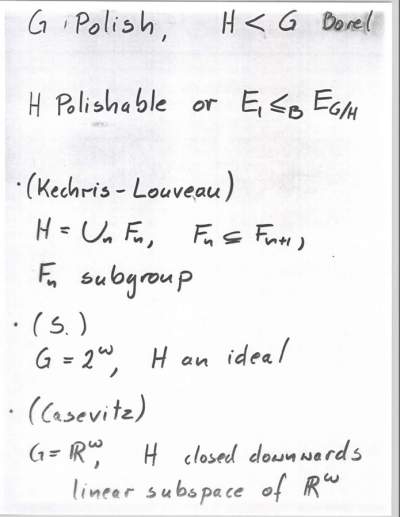 G Polish, H < G Borel
H Polishable or E₁ ≤_B E_{G/H}
· (Kechris - Louveau)
H = ∪ₙ Fₙ, Fₙ ⊆ Fₙ₊₁,
Fₙ subgroup
· (S.)
G = 2^ω, H an ideal
· (Casevitz)
G = ℝ^ω, H closed downwards
linear subspace of ℝ^ω